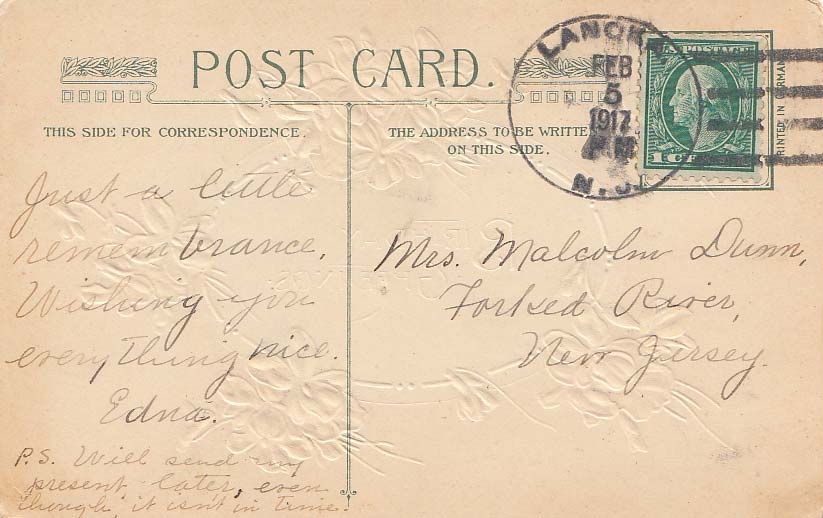 POST CARD.
THIS SIDE FOR CORRESPONDENCE.
THE ADDRESS TO BE WRITTEN
ON THIS SIDE.
FEB
5
1917
N.J.
U.S. POSTAGE
1 CT
PRINTED IN GERMANY
Just a little
remembrance.
Wishing you
everything nice.
Edna.
P.S. Will send my
present later, even
though it isn't in time.
Mrs. Malcolm Dunn,
Forked River,
New Jersey.